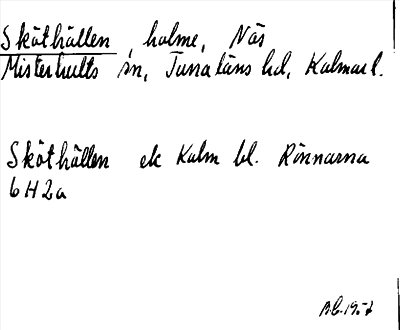 Sköthällen, holme, Näs
Misterhults sn, Tunaläns hd, Kalmar l.
Sköthällen ek Kalm bl. Rönnarna
6H2a